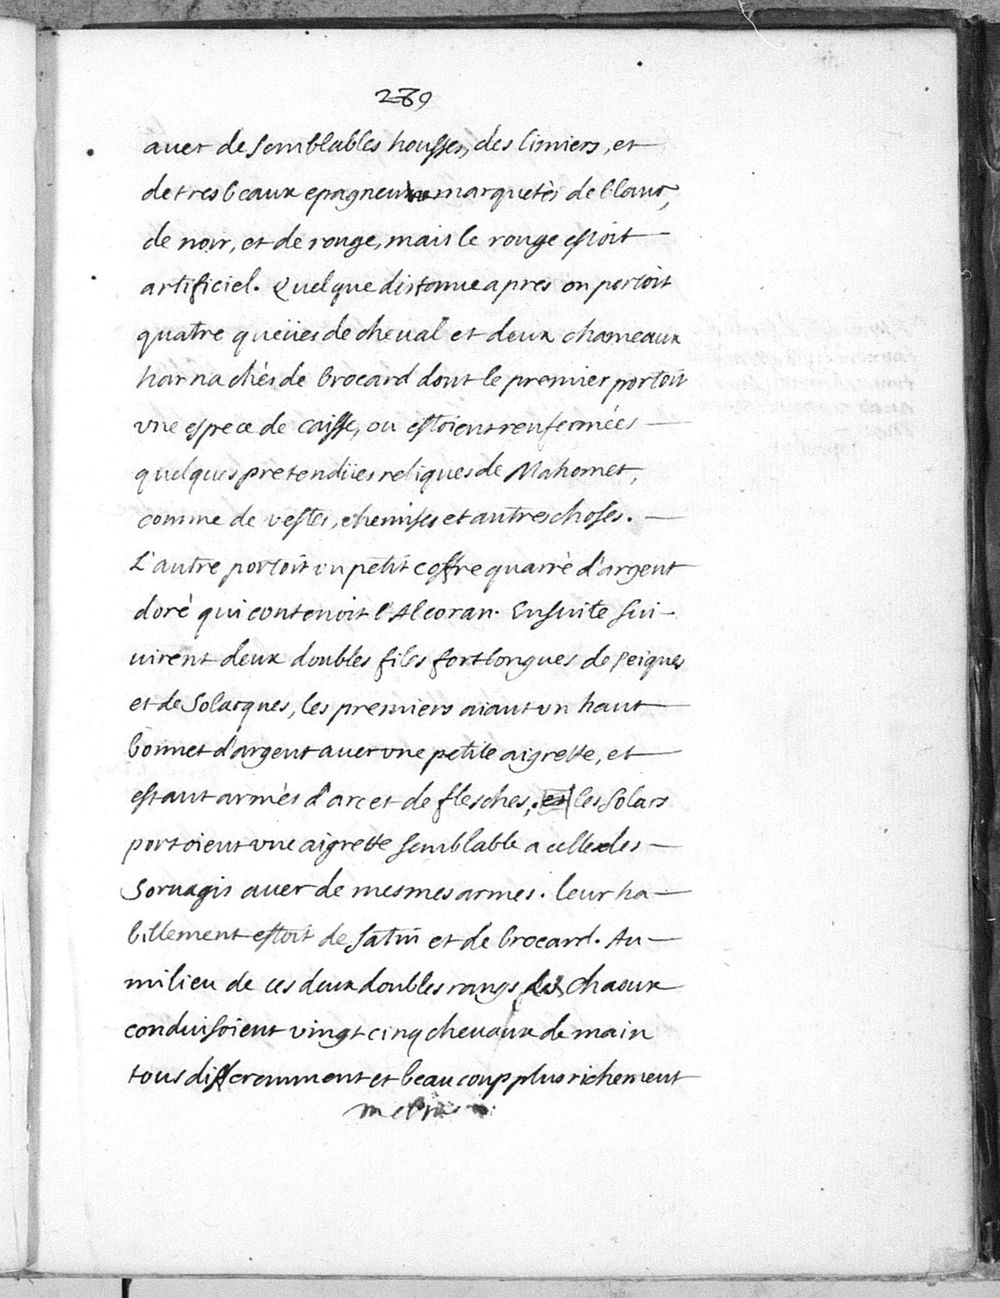 239
auec de semblables housses, des limiers, et
de tres beaux epagneux marquetés de blanc,
de noir, et de rouge, mais le rouge estoit
artificiel. Quelque distance apres on portoit
quatre queües de cheual et deux chameaux
harnachés de brocard dont le premier portoit
vne espece de caisse, ou estoient renfermées
quelques pretendües reliques de Mahomet,
comme de vestes, chemises et autres choses.
L'autre portoit vn petit coffre quarré d'argent
doré qui contenoit l'Alcoran. Ensuite sui-
uirent deux doubles files fort longues de Peiques
et de Solacques, les premiers aiant vn haut
bonnet d'argent auec vne petite aigrette, et
estant armés d'arc et de flesches, et les Solacs
portoient vne aigrette semblable a celle des
Soruagis auec de mesmes armes. leur ha-
billement estoit de satin et de brocard. Au
milieu de ces deux doubles rangs des Chaoux
conduisoient vingt cinq cheuaux de main
tous differemment et beaucoup plus richement